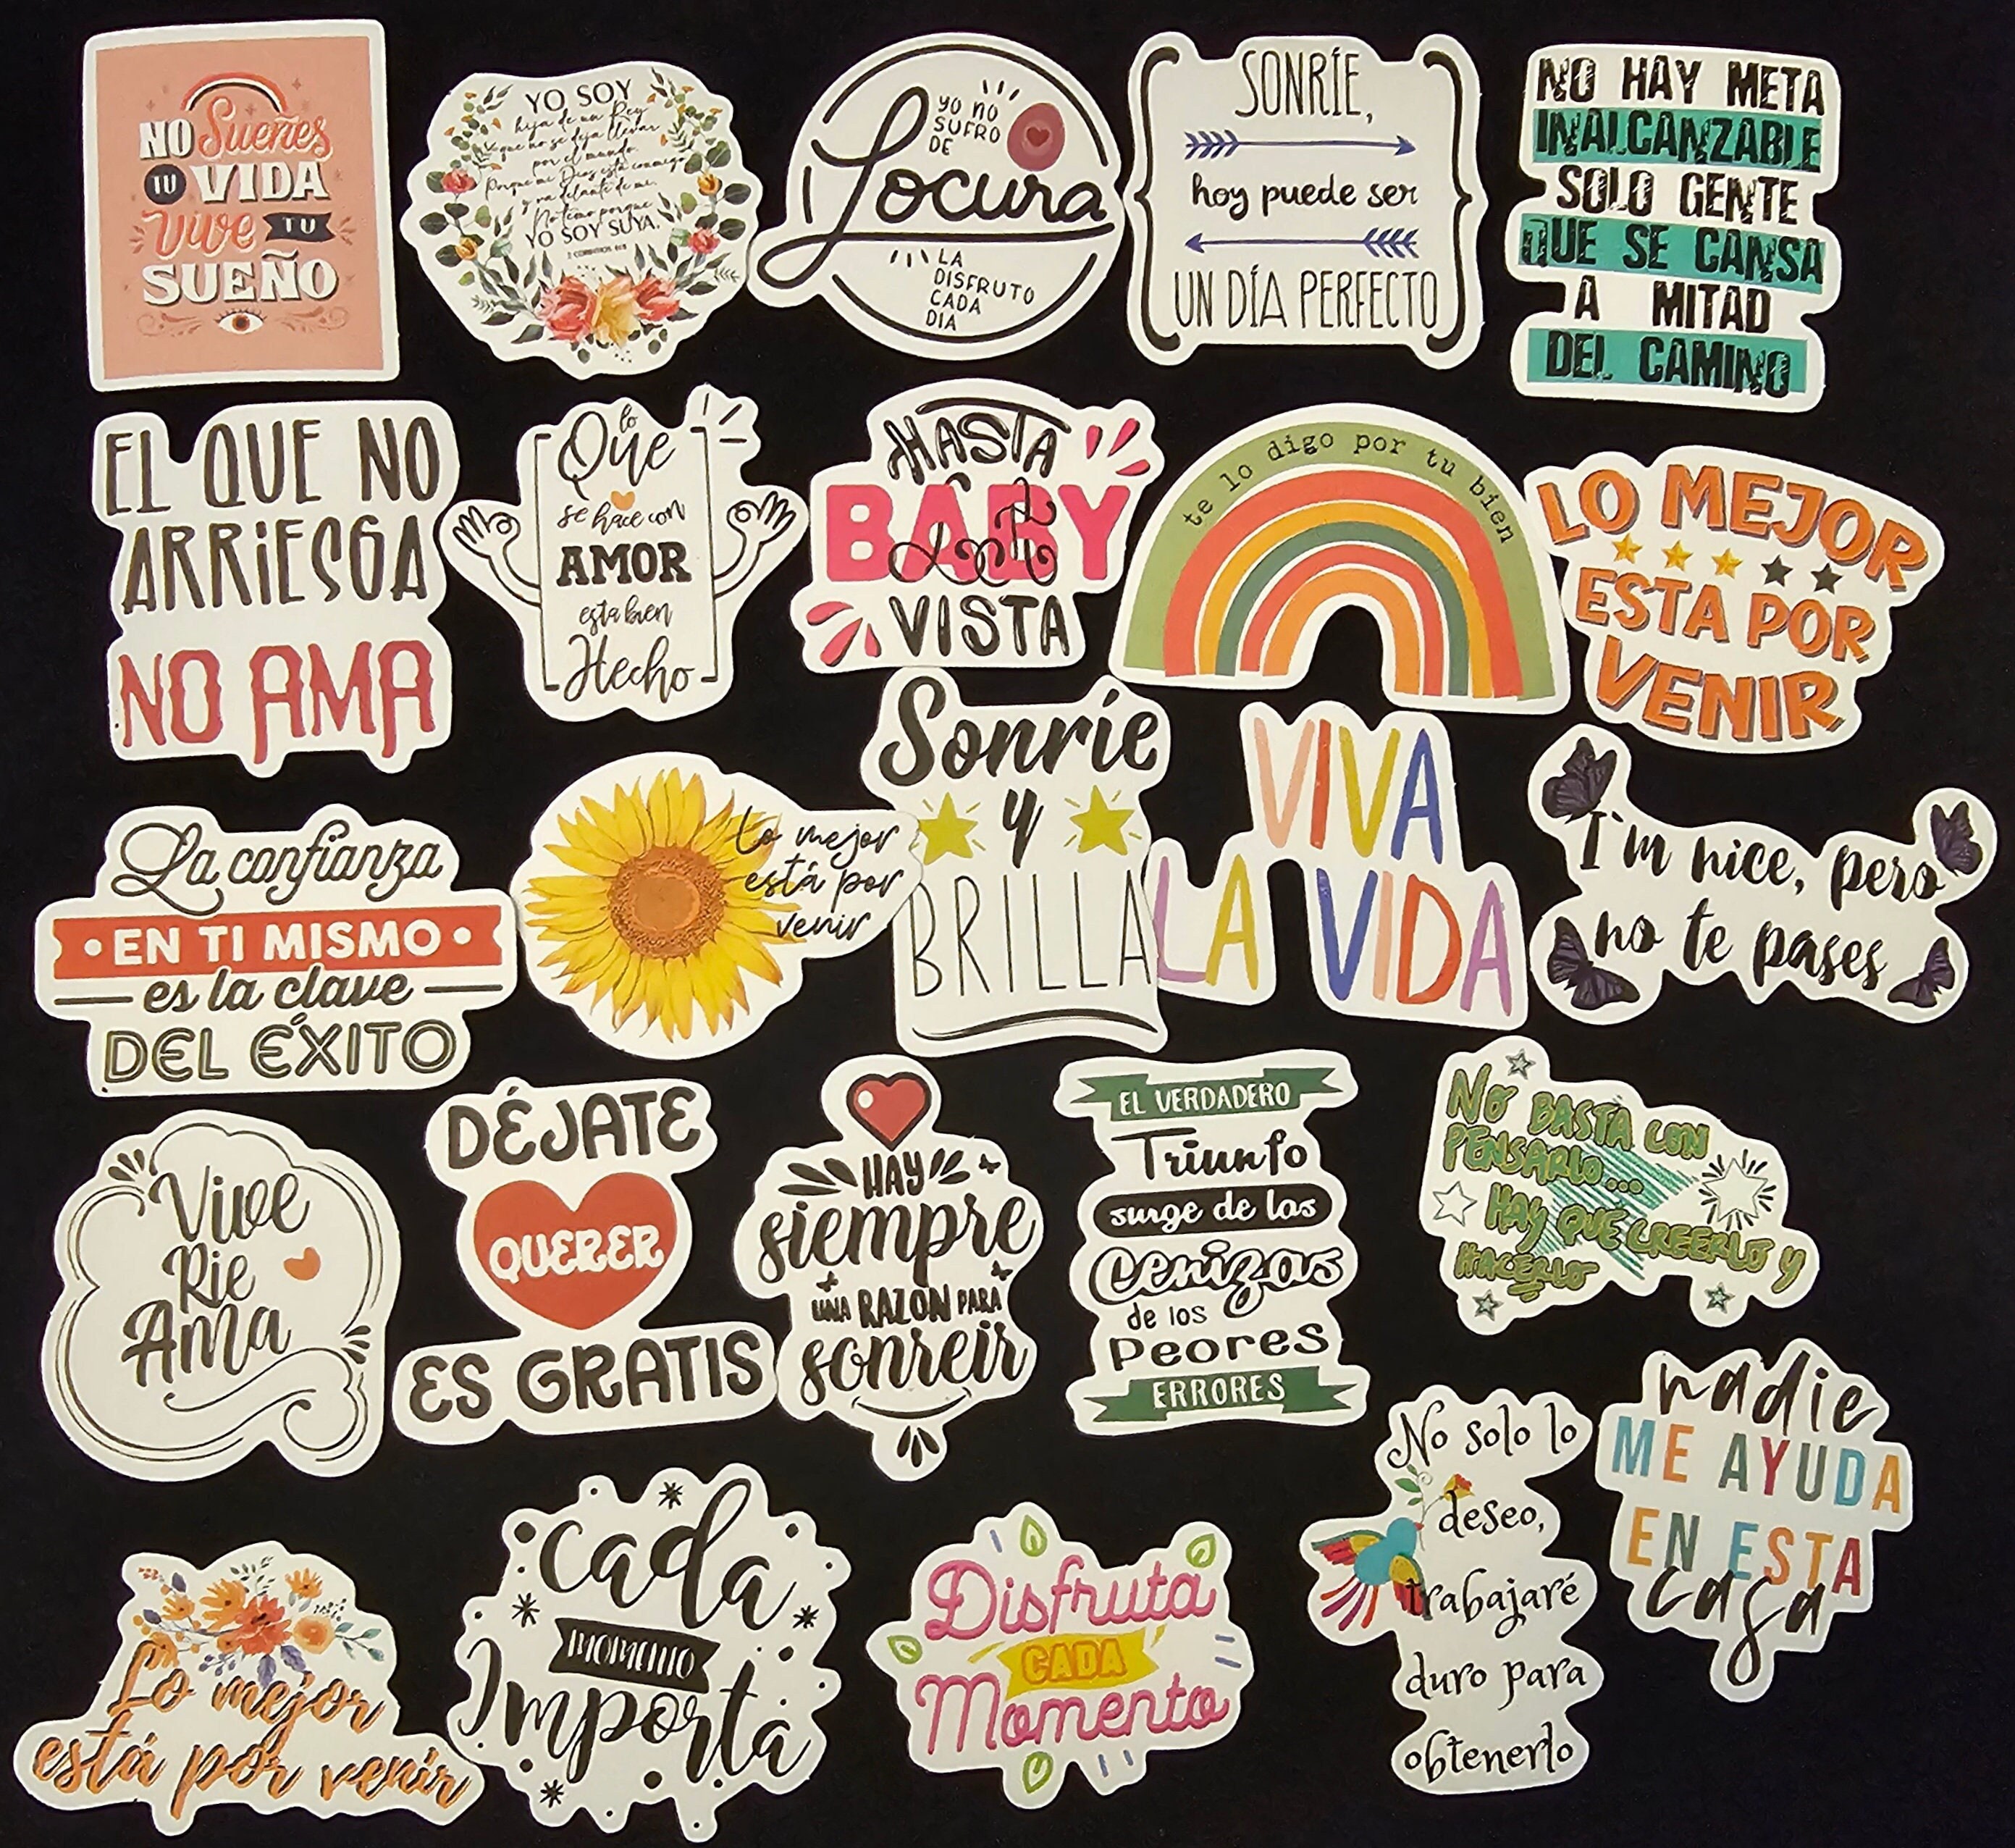 NO Sueñes
TU VIDA
Vive TU
SUEÑO
YO SOY
hija de un Rey
que no se deja llevar
por el mundo.
Porque mi Dios está conmigo
y va delante de mi.
No temo porque
YO SOY SUYA.
YO NO
SUFRO
DE
Locura
LA
DISFRUTO
CADA
DIA
SONRÍE,
hoy puede ser
UN DÍA PERFECTO
NO HAY META
INALCANZABLE
SOLO GENTE
QUE SE CANSA
A MITAD
DEL CAMINO
EL QUE NO
ARRiESGA
NO AMA
lo
Que
se hace con
AMOR
esta bien
Hecho
HASTA
BABY
la
VISTA
te lo digo por tu bien
LO MEJOR
ESTA POR
VENIR
La confianza
EN TI MISMO
es la clave
DEL ÉXITO
Lo mejor
está por
venir
Sonríe
y
BRILLA
VIVA
LA VIDA
I'm nice, pero
no te pases
Vive
Rie
Ama
DÉJATE
QUERER
ES GRATIS
HAY
siempre
UNA RAZON PARA
sonreir
EL VERDADERO
Triunfo
surge de las
cenizas
de los
Peores
ERRORES
NO BASTA CON
PENSARLO...
HAY QUE CREERLO Y
HACERLO
No solo lo
deseo,
trabajaré
duro para
obtenerlo
nadie
ME AYUDA
EN ESTA
casa
Lo mejor
está por venir
cada
MOMENTO
Importa
Disfruta
CADA
Momento